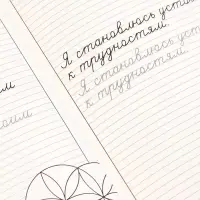 Я становлюсь усто
к трудностям.
Я становлюсь уст
к трудностям.